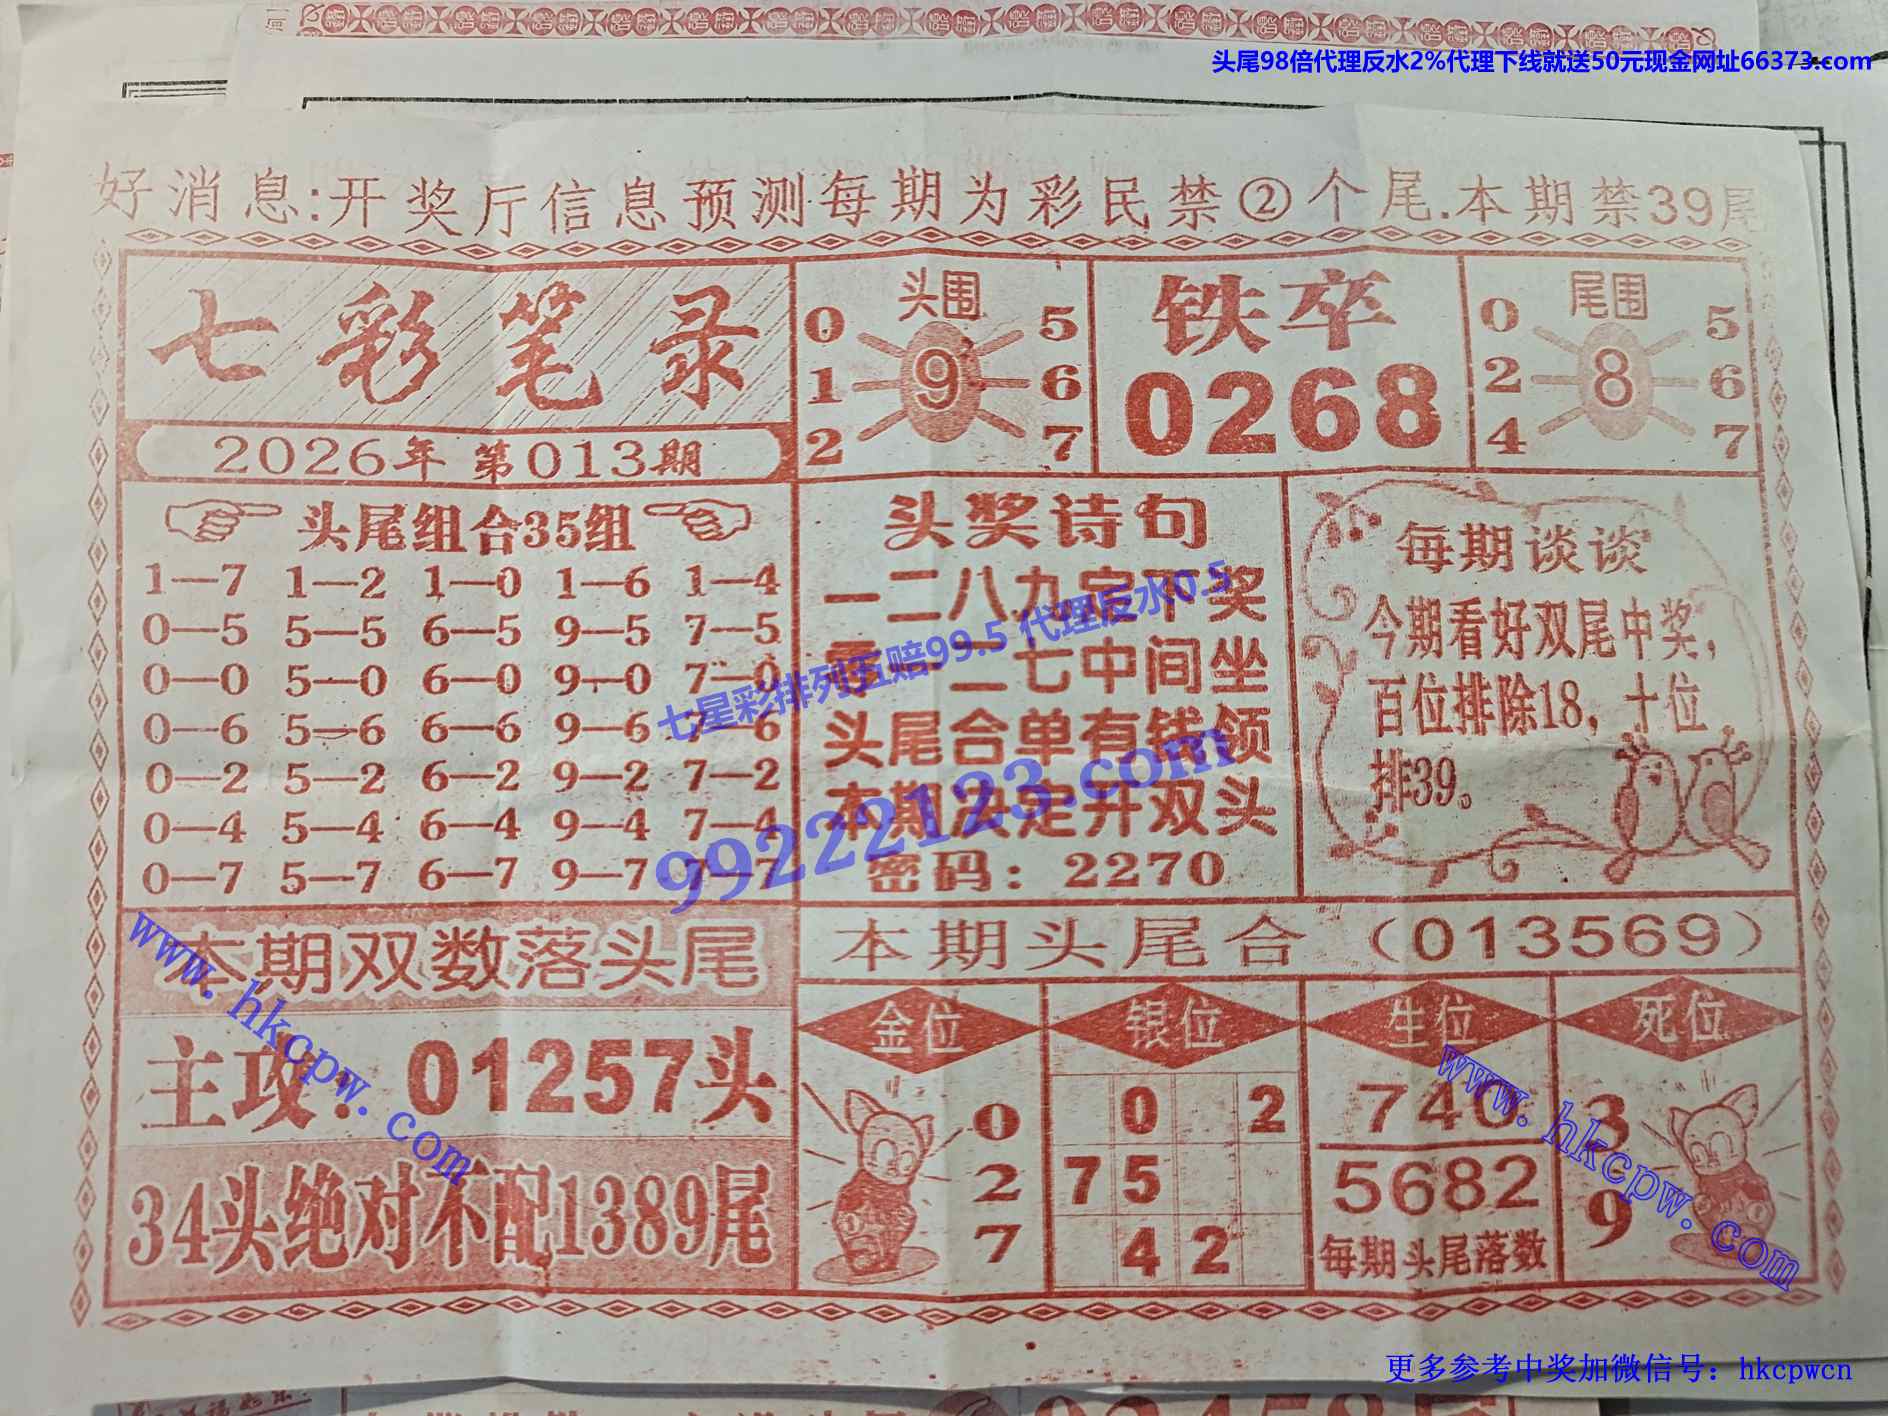 头尾98倍代理反水2%代理下线就送50元现金网址66373.com
好消息:开奖厅信息预测每期为彩民禁②个尾.本期禁39尾
七彩笔录
2026年 第013期
头围
0 5
1 9 6
2 7
铁卒
0268
尾围
0 5
2 8 6
4 7
头尾组合35组
1—7 1—2 1—0 1—6 1—4
0—5 5—5 6—5 9—5 7—5
0—0 5—0 6—0 9—0 7—0
0—6 5—6 6—6 9—6 7—6
0—2 5—2 6—2 9—2 7—2
0—4 5—4 6—4 9—4 7—4
0—7 5—7 6—7 9—7 7—7
头奖诗句
一二八九定下奖
二七中间坐
头尾合单有钱领
本期决定开双头
密码：2270
每期谈谈
今期看好双尾中奖，
百位排除18，十位
排39。
七星彩排列五赔99.5 代理反水0.5
99222123.com
本期双数落头尾
主攻：01257头
34头绝对不配1389尾
本期头尾合（013569）
金位
0
2
7
银位
0 2
7 5
4 2
生位
740
5682
每期头尾落数
死位
3
9
www.hkcpw.com
www.hkcpw.com
更多参考中奖加微信号：hkcpwcn